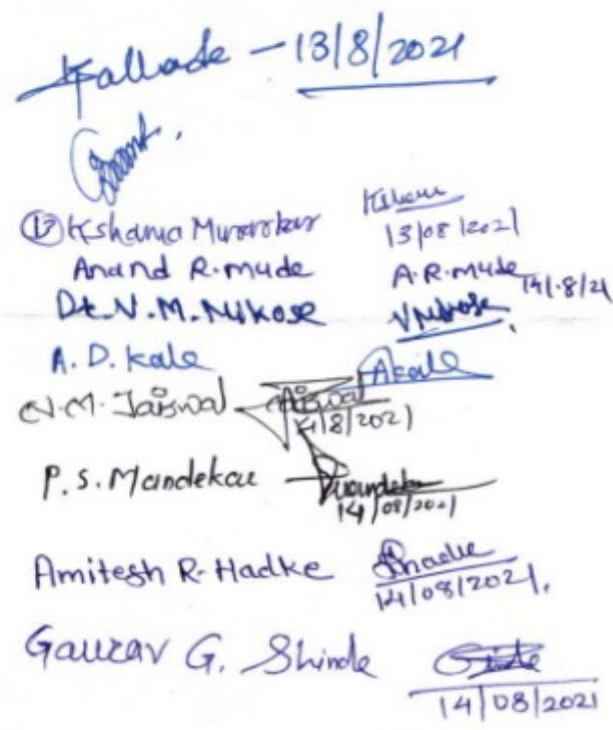 Kallade - 13/8/2021
(17) Kshama Murarkar 13/08/2021
Anand R. mude A.R. mude 14/.8/21
Dr. N. M. Nikose
A. D. Kale Akale
N.M. Jaiswal Jaiswal
14/8/2021
P. S. Mandekar
14/08/2021
Amitesh R. Hadke
14/08/2021.
Gaurav G. Shinde
14/08/2021